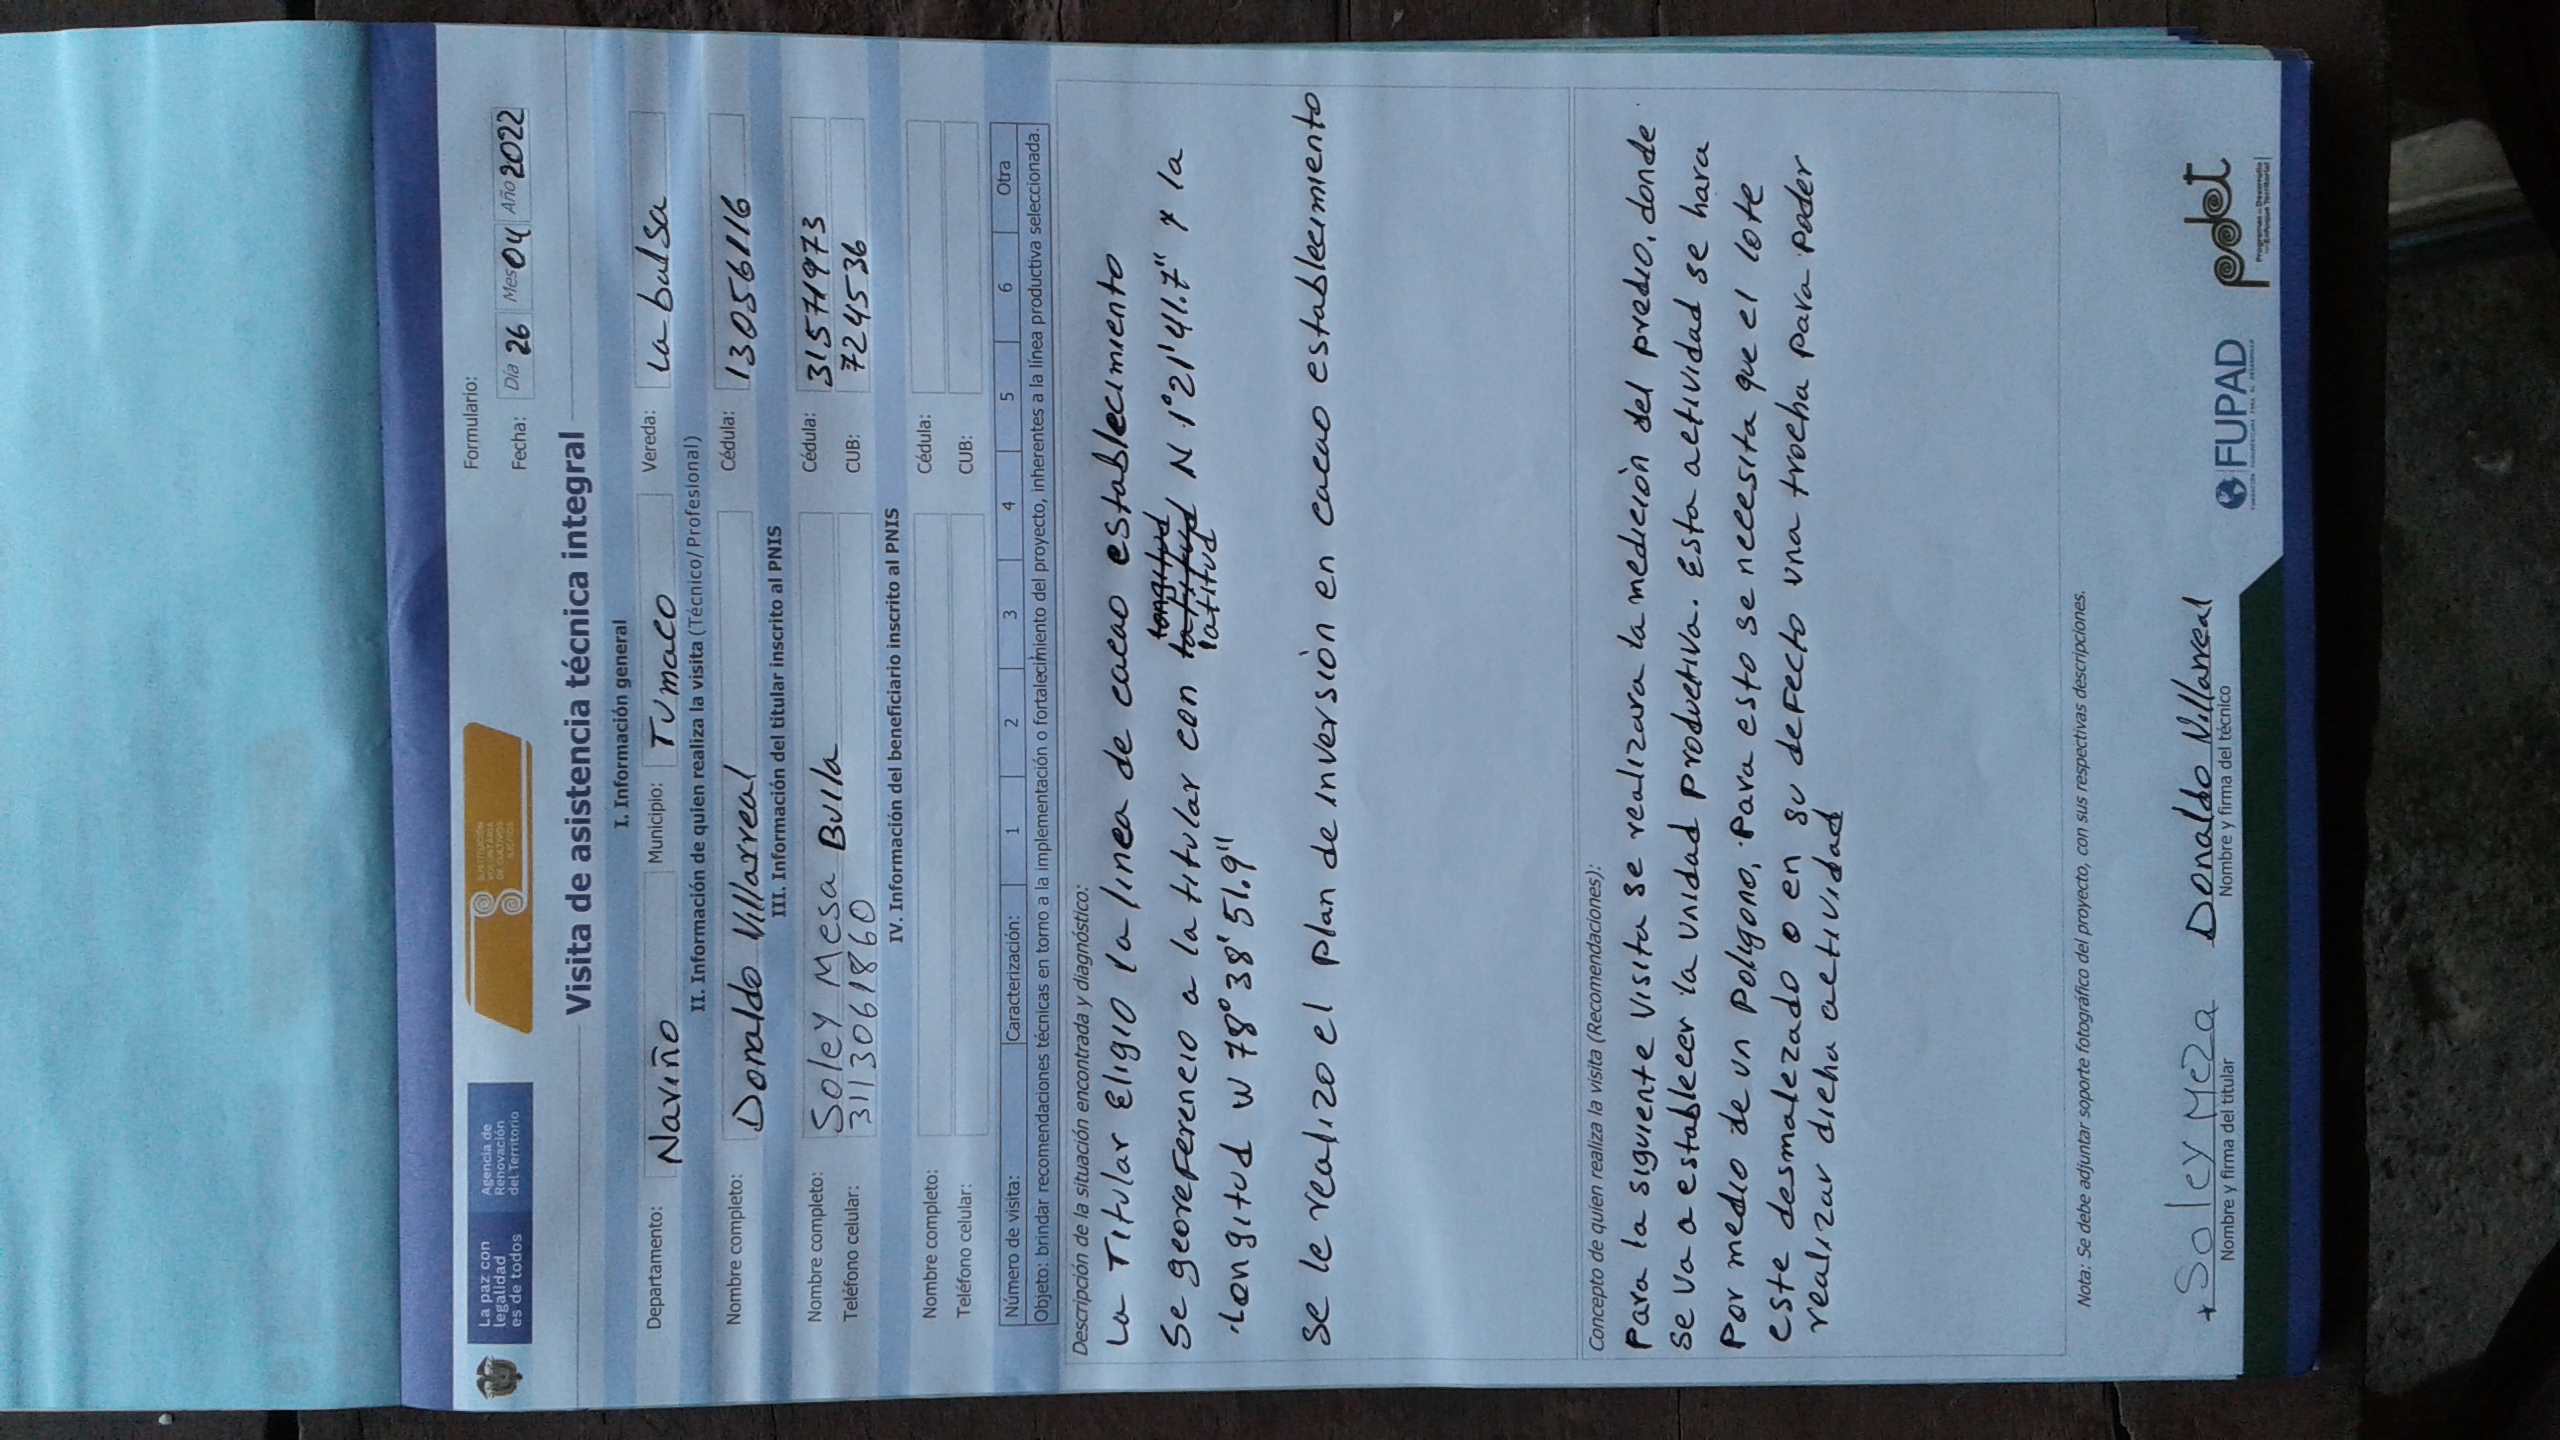 La paz con
legalidad
es de todos
Agencia de
Renovación
del Territorio
SUSTITUCIÓN
VOLUNTARIA
DE CULTIVOS
ILÍCITOS
Formulario:
Fecha: Día 26 Mes 04 Año 2022
Visita de asistencia técnica integral
I. Información general
Departamento: Nariño Municipio: Tumaco Vereda: La balsa
II. Información de quien realiza la visita (Técnico/ Profesional)
Nombre completo: Donaldo Villarreal Cédula: 13056116
III. Información del titular inscrito al PNIS
Nombre completo: Soley Mesa Bulla Cédula: 31571973
Teléfono celular: 3113061860 CUB: 7245536
IV. Información del beneficiario inscrito al PNIS
Nombre completo: Cédula:
Teléfono celular: CUB:
Número de visita: Caracterización: 1 2 3 4 5 6 Otra
Objeto: brindar recomendaciones técnicas en torno a la implementación o fortalecimiento del proyecto, inherentes a la línea productiva seleccionada.
Descripción de la situación encontrada y diagnóstico:
La Titular Eligio la linea de cacao establecimiento
Se georeferencio a la titular con longitud latitud N 1°21'41.7" y la
latitud
Longitud W 78°38'51.9"
Se le realizo el plan de inversion en cacao establecimiento
Concepto de quien realiza la visita (Recomendaciones):
Para la siguiente visita se realizara la medición del predio, donde
se va a establecer la unidad productiva. Esta actividad se hara
Por medio de un Poligono. Para esto se necesita que el lote
este desmalezado o en su defecto una trocha para poder
realizar dicha actividad
Nota: Se debe adjuntar soporte fotográfico del proyecto, con sus respectivas descripciones.
+ Soley Meza Donaldo Villarreal
Nombre y firma del titular Nombre y firma del técnico
FUPAD
pdet
Programas de Desarrollo
con Enfoque Territorial